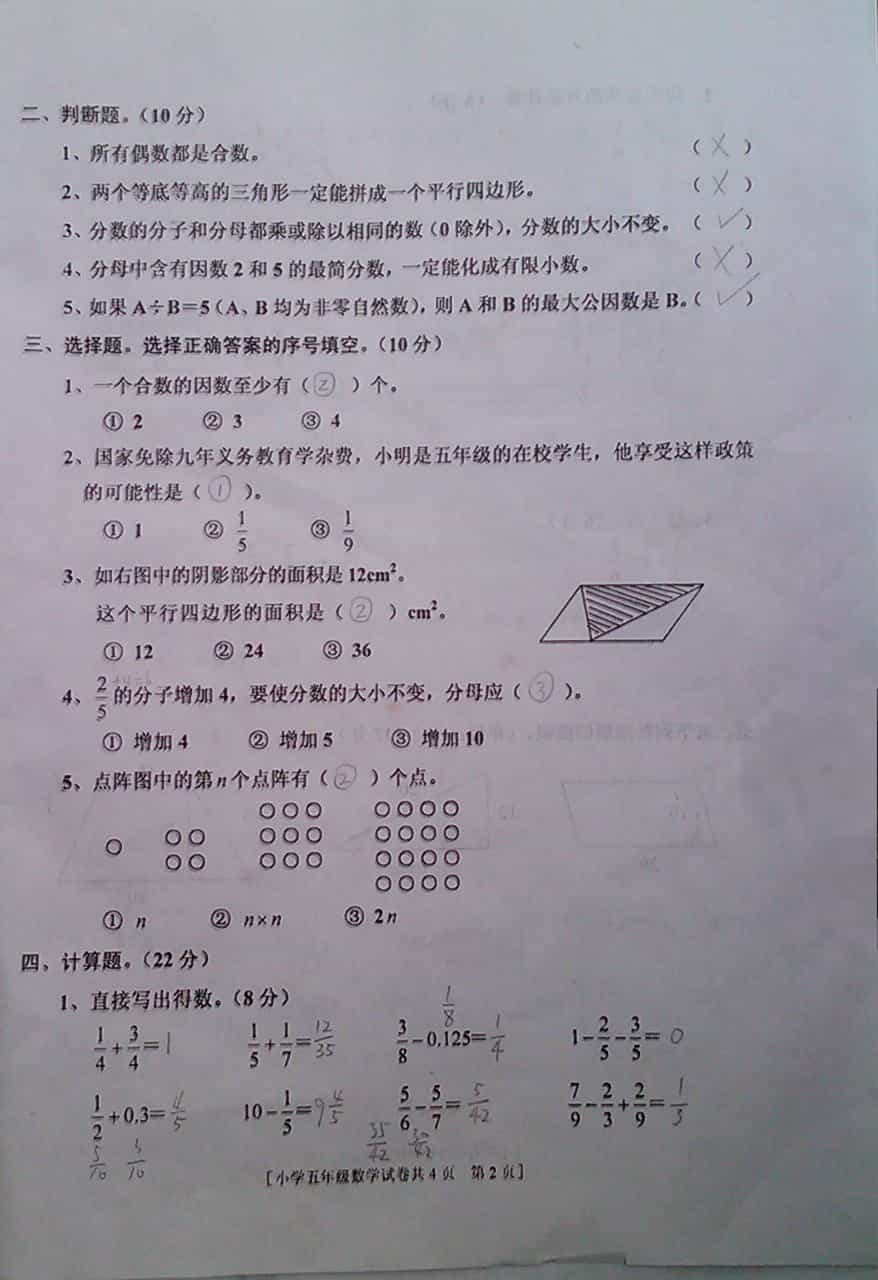 二、判断题。(10 分)
1、所有偶数都是合数。 ( × )
2、两个等底等高的三角形一定能拼成一个平行四边形。 ( × )
3、分数的分子和分母都乘或除以相同的数(0 除外),分数的大小不变。 ( ✓ )
4、分母中含有因数 2 和 5 的最简分数,一定能化成有限小数。 ( × )
5、如果 A÷B=5(A、B 均为非零自然数),则 A 和 B 的最大公因数是 B。( ✓ )
三、选择题。选择正确答案的序号填空。(10 分)
1、一个合数的因数至少有( ② )个。
① 2 ② 3 ③ 4
2、国家免除九年义务教育学杂费,小明是五年级的在校学生,他享受这样政策
的可能性是( ① )。
① 1 ② 1/5 ③ 1/9
3、如右图中的阴影部分的面积是 12cm²。
这个平行四边形的面积是( ② )cm²。
① 12 ② 24 ③ 36
4、2/5 的分子增加 4,要使分数的大小不变,分母应( ③ )。
① 增加 4 ② 增加 5 ③ 增加 10
5、点阵图中的第 n 个点阵有( ② )个点。
① n ② n×n ③ 2n
四、计算题。(22 分)
1、直接写出得数。(8 分)
1/8
1/4+3/4=1 1/5+1/7=12/35 3/8-0.125=1/4 1-2/5-3/5=0
1/2+0.3=4/5 10-1/5=9 4/5 5/6-5/7=5/42 7/9-2/3+2/9=1/3
5/10 3/10 35/42 30/42
[小学五年级数学试卷共 4 页 第 2 页]